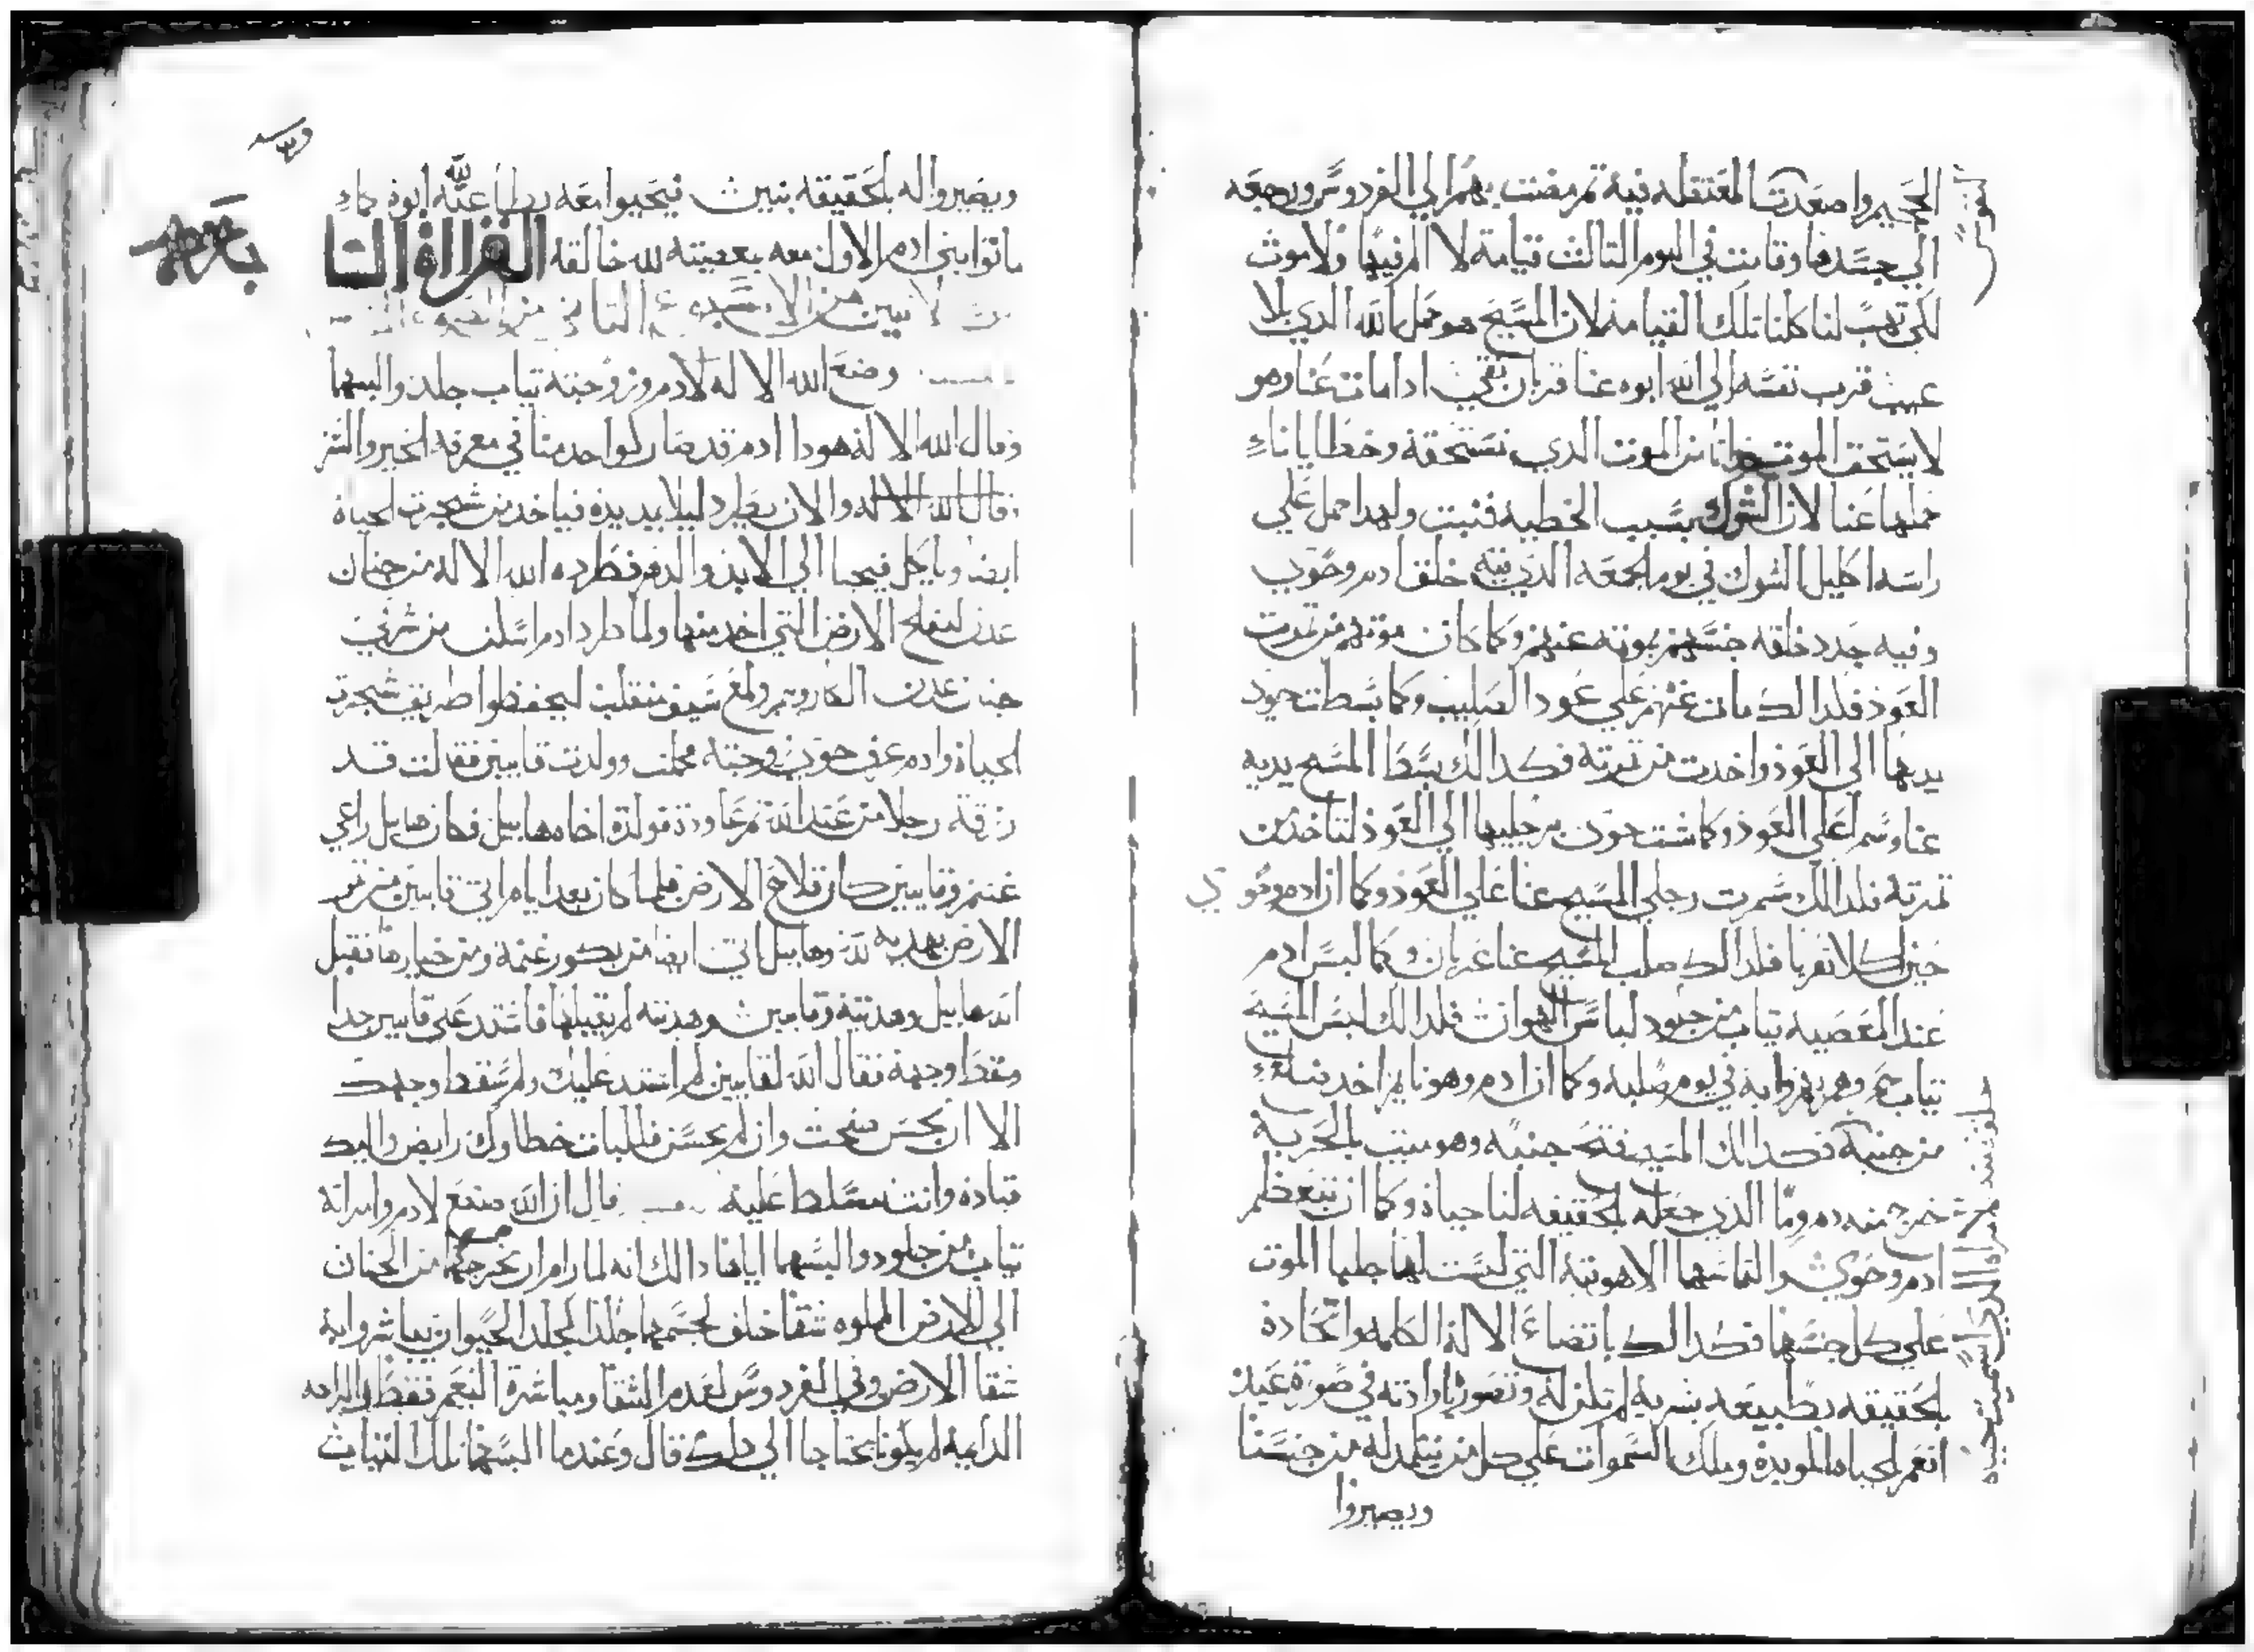 الجحيم واصعدت المعتقله فيه ثم مضت بهم الي الفردوس ورجعه
الي جسدها وقامت في اليوم التالت قيامة لا الم فيها ولا موت
لكي تهب لنا كلنا تلك القيامه لان المسيح هو حمل الله الدي بلا
عيب قرب نفسه الي الله ابوه عنا قربان نقي ادا مات عنا وهو
لا يستحق الموت من الموت الدي نستحقه وخطايانا
حملها عنا لان الشوك بسبب الخطيه فنبت ولهدا حمل علي
راسه اكليل الشوك في يوم الجمعه الدي فيه خلق ادم وحوي
وفيه جدد خلقه جنسهم بموته عنهم وكما كان موتهم من تمرت
العود فلدالك مات عنهم علي عود الصليب وكما بسطت حوي
يديها الي العود واخدت من تمرته فكدالك بسط المسيح يديه
عنا وسمر علي العود وكما مشت حوي برجليها الي العود لتاخد من
تمرته فلدالك سمرت رجلي المسيح عنا علي العود وكما ان ادم وحوي
حين اكلا تعريا فلدالك صلب المسيح عنا عريان وكما لبس ادم
عند المعصيه تياب من جلود لباس الهوان فلدالك لبس المسيح
تياب وهم يهزوا به في يوم صلبه وكما ان ادم وهو نايم اخد ضلع
من جنبه فكدالك المسيح فتح جنبه وهو ميت بالحربه
خرج منه دم وما الدي جعله بالحقيقه لنا حياة وكما ان بتعظم
ادم وحوي والتماسهما الاهوتيه التي ليست لهما جلبا الموت
علي كل جنسهما فكدالك باتضاع الاله الكلمه واتحاده
بالحقيقه بطبيعه بشريه لم تكن له وتصوره بارادته في صورة عبد
انعم بالحياه الموبده وملك السموات علي كل من يتلمد له من جنسنا
ويصيروا
ويصيروا له بالحقيقه بنين فيحيوا معه بطاعته لله ابوه كما
ماتوا بني ادم الاول معه بمعصيته لله خالقه القراه التا
وصنع الله الاله لادم وزوجته تياب جلد والبسهما
وقال الله الاله هودا ادم قد صار كواحد منا في معرفه الخير والشر
قال الله الاله والان يطرد ليلا يمد يده فياخد من شجرت الحياة
ايضا وياكل فيحيا الي الابد والدهر فطرده الله الاله من جنان
عدن ليفلح الارض التي اخد منها ولما طرد ادم اسكن من شرقي
جنات عدن الكاروبيم ولمع سيف منقلب ليحفظوا طريق شجرت
الحياة وادم عرف حوي زوجته فحملت وولدت قايين فقالت قد
رزقة رجلا من عند الله ثم عاودة فولدة اخاه هابيل فكان هابيل راعي
غنم وقايين كان فلاح الارض فلما كان بعد ايام اتي قايين من تمر
الارض بهديه لله وهابيل اتي ايضا من بكور غنمه ومن خيارها فقبل
الله هابيل وهديته وقايين وهديته لم يقبلها فاشتد علي قايين جدا
وسقط وجهه فقال الله لقايين لم اشتد عليك ولم سقط وجهك
الا ان تحسن وان لم تحسن فللباب خطا رابض واليك
قياده وانت مسلط عليه قال ان الله صنع لادم وامراته
تياب من جلود والبسهما اياها دالك انه لما رام ان يخرجهما من الجنان
الي الارض المملوه شقا خلق لجسمهما جلدا كجلد الحيوان يباشروا به
شقا الارض وفي الفردوس لعدم الشقا ومباشرة النعم فقط والراحه
الدايمه لم يكونا يحتاجا الي دلك قال وعندما البسهما تلك التياب